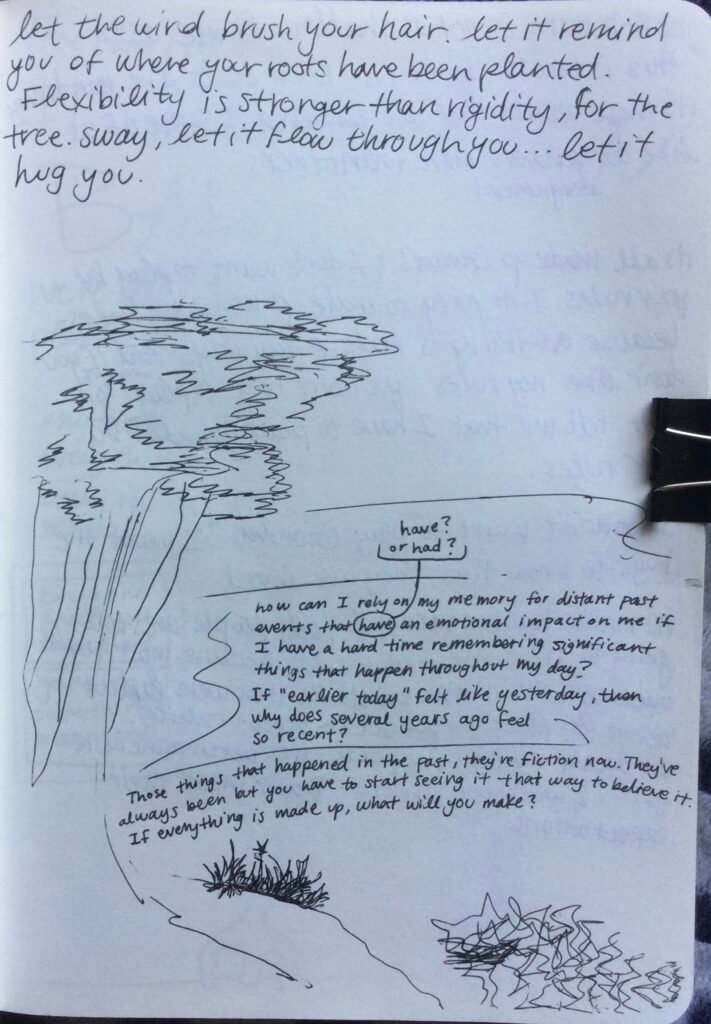 let the wind brush your hair. let it remind
you of where your roots have been planted.
Flexibility is stronger than rigidity, for the
tree. sway, let it flow through you... let it
hug you.
have?
or had?
how can I rely on my memory for distant past
events that have an emotional impact on me if
I have a hard time remembering significant
things that happen throughout my day?
If "earlier today" felt like yesterday, then
why does several years ago feel
so recent?
Those things that happened in the past, they're fiction now. They've
always been but you have to start seeing it that way to believe it.
If everything is made up, what will you make?